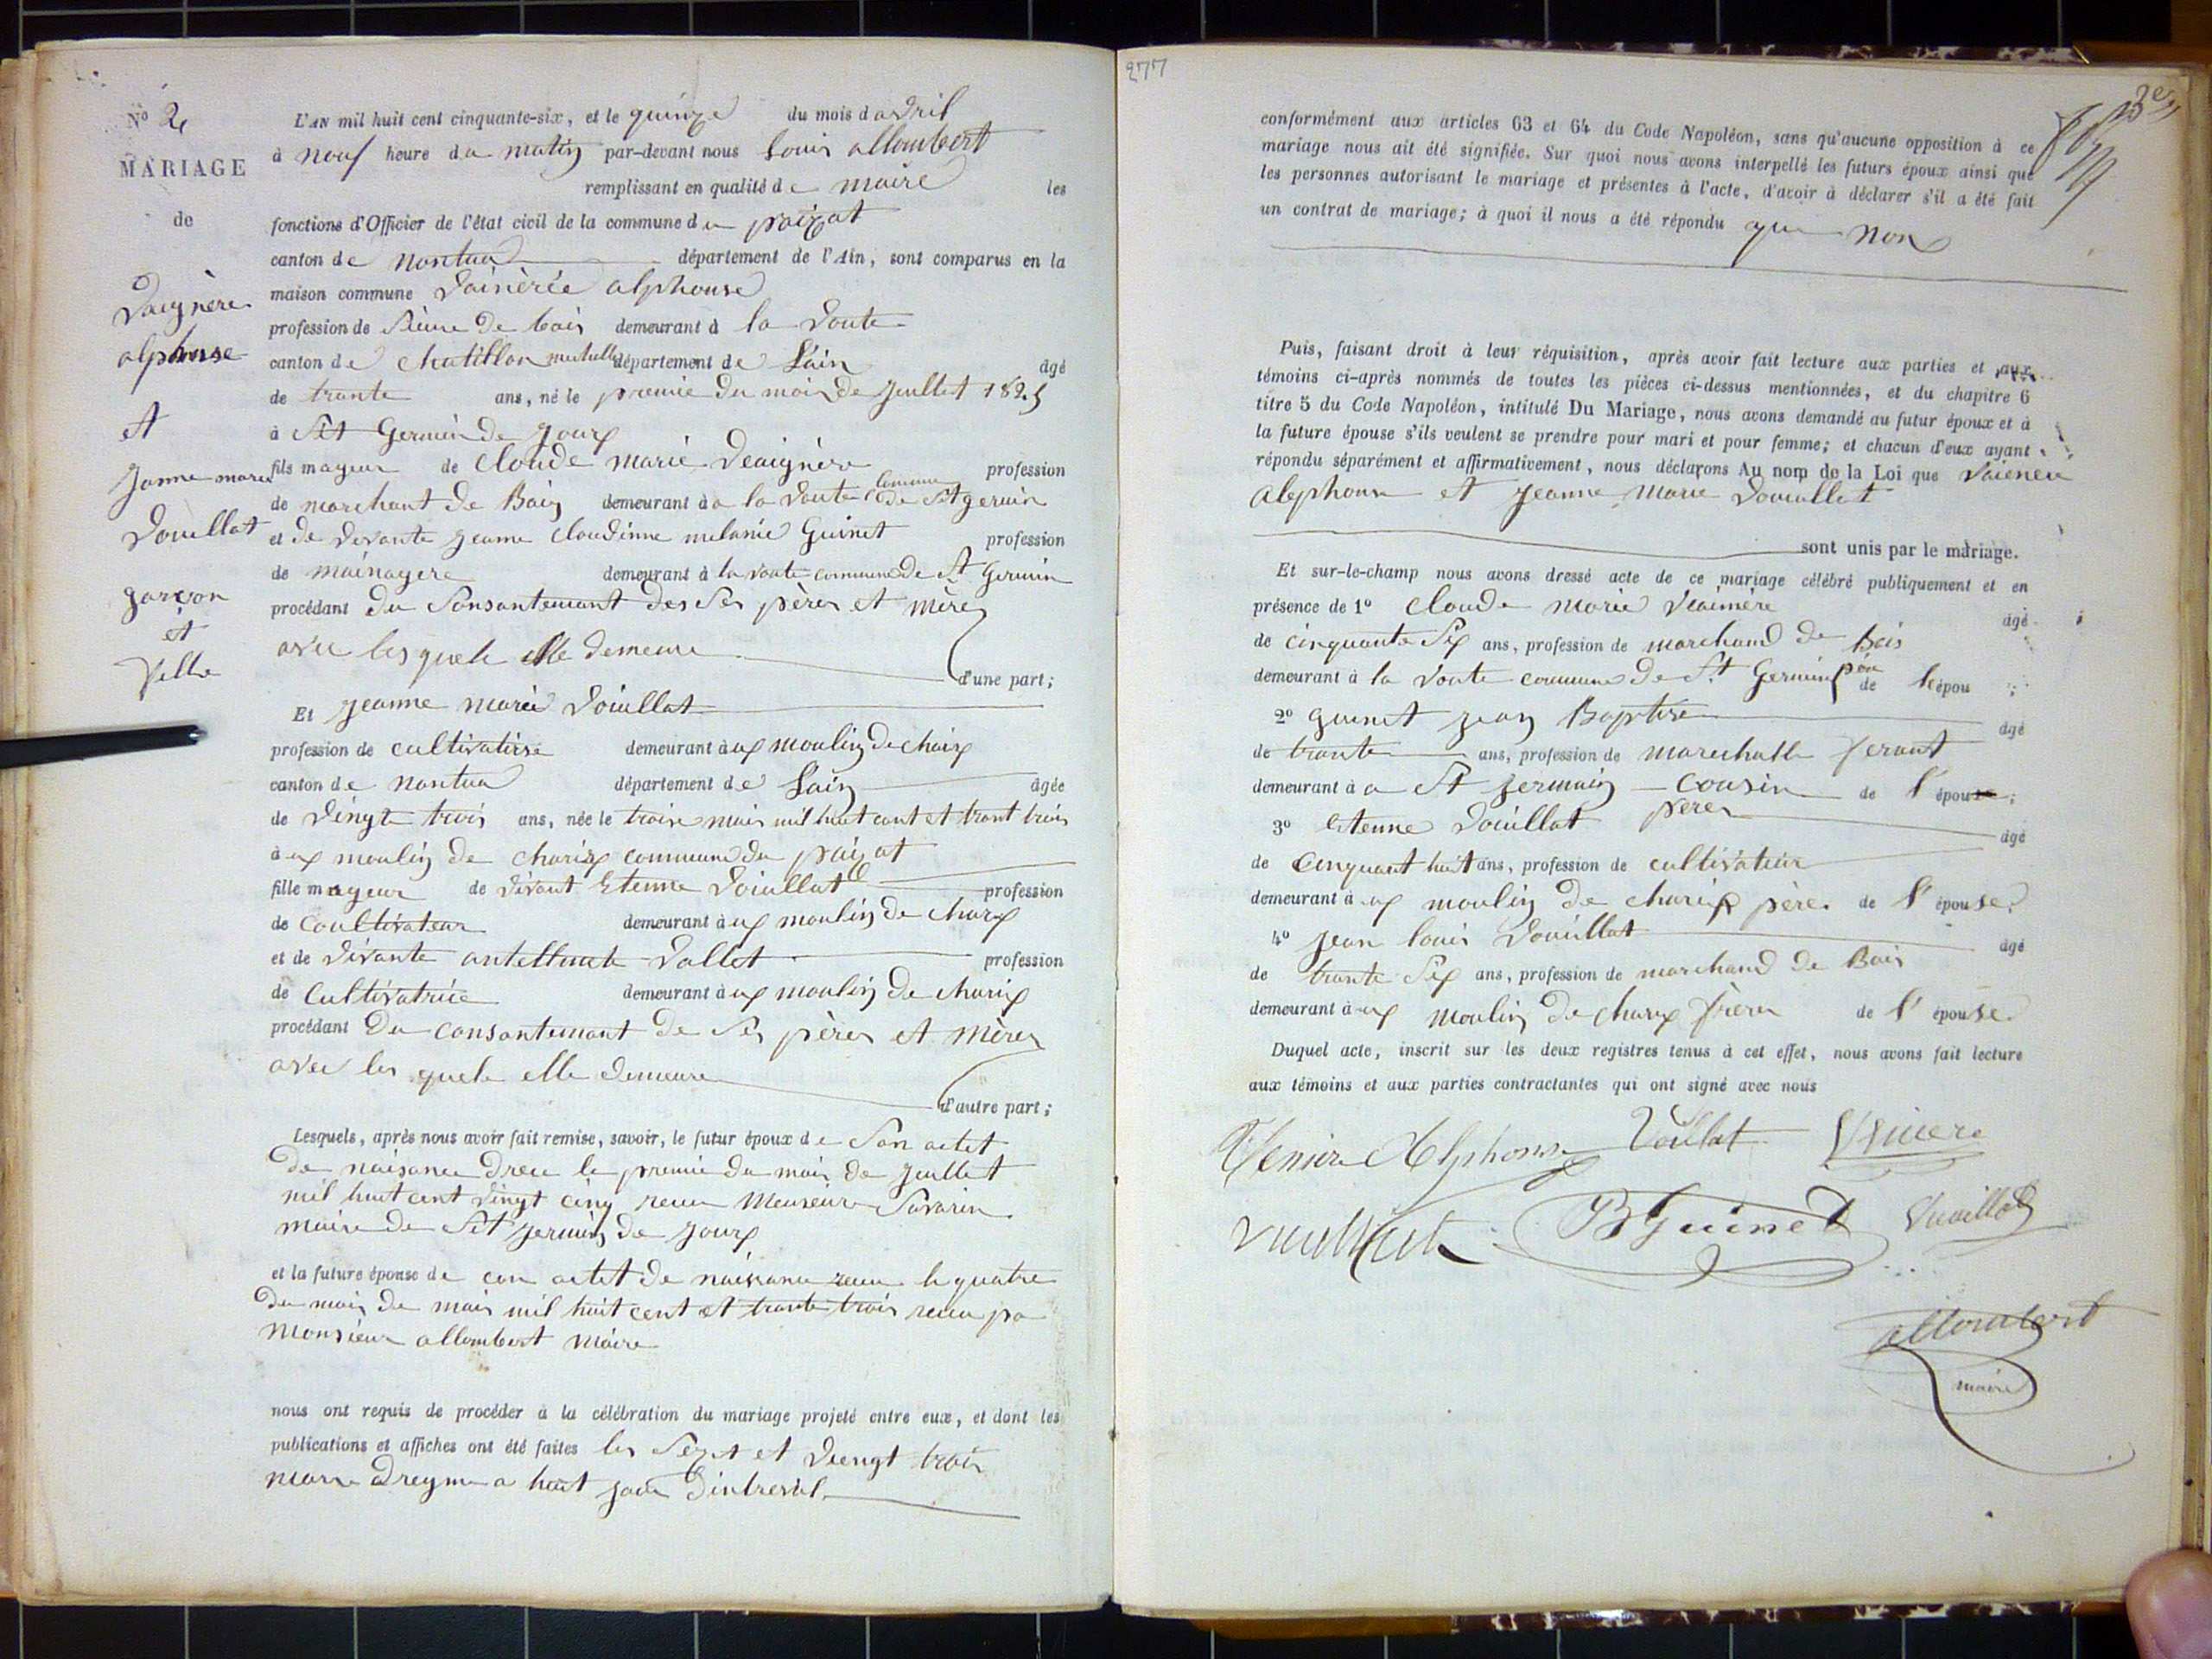 No 2
MARIAGE
de
Vaignère
alphonse
et
Janne marie
Vouillat
garcon
et
fille
L'AN mil huit cent cinquante-six, et le quinze du mois d avril
à neuf heure du matin par-devant nous Louis allombert
remplissant en qualité de maire les
fonctions d'Officier de l'état civil de la commune du poizat
canton de nantua département de l'Ain, sont comparus en la
maison commune Vainèrée alphonse
profession de Sieur de bois demeurant à la Voute
canton de chatillon michalle département de Lain âgé
de trante ans, né le premie du mois de Juillet 1825
à St Germin de Joux
fils mageur de cloude marie Veaignère profession
de marchant de Bois demeurant à a la Voute Commune de St germin
et de vivante Jeanne Claudinne melanie Guinet profession
de mainagere demeurant à la voute commune de St Germin
procédant du Consantement des Ses pères et mères
avec les quels elle demeure
d'une part;
Et Jeanne marie Vouillat
profession de cultivatirse demeurant à ux moulin de chaix
canton de nantua département de Lain âgée
de vingte trois ans, née le troise mais mil huit cent et trant trois
à ux moulin de charix commune du poizat
fille mageur de vivant Etenne Vouillat profession
de coultivateur demeurant à ux moulin de charix
et de vivante Vallet profession
de cultivatrice demeurant à ux moulin de charix
procédant du consantemant de Ses pères et Mères
avec les quels elle demeure
d'autre part;
Lesquels, après nous avoir fait remise, savoir, le futur époux de Son actet
de naisance le premie du mois de Juillet
mil huit cent vingt cinq recu Savarin
maire de St Jermin de Joux
et la future épouse de con actet de naisance recu le quatre
du mois de mais mil huit cent et trante trois recu pa
Monsieur allombert Maire
nous ont requis de procéder à la célébration du mariage projeté entre eux, et dont les
publications et affiches ont été faites les et viengt trois
a huit Jour d'intreval
277
conformément aux articles 63 et 64 du Code Napoléon, sans qu'aucune opposition à ce
mariage nous ait été signifiée. Sur quoi nous avons interpellé les futurs époux ainsi que
les personnes autorisant le mariage et présentes à l'acte, d'avoir à déclarer s'il a été fait
un contrat de mariage; à quoi il nous a été répondu que non
Puis, faisant droit à leur réquisition, après avoir fait lecture aux parties et aux
témoins ci-après nommés de toutes les pièces ci-dessus mentionnées, et du chapitre 6
titre 5 du Code Napoléon, intitulé Du Mariage, nous avons demandé au futur époux et à
la future épouse s'ils veulent se prendre pour mari et pour femme; et chacun d'eux ayant
répondu séparément et affirmativement, nous déclarons Au nom de la Loi que
Alephonse et Jeanne Marie Vouillat
sont unis par le mariage.
Et sur-le-champ nous avons dressé acte de ce mariage célébré publiquement et en
présence de 1° cloude Marie Veainière âgé
de cinquante Six ans, profession de marchand de Bois
demeurant à la Voute commune de St Germin père de l'épou ;
2° guinet Jean Baptise âgé
de trante ans, profession de marechalle ferant
demeurant à a St Jermain cousin de l'épouse;
3° Etenne Vouillat pères âgé
de Cinquant huit ans, profession de cultivateur
demeurant à ux moulin de charix père de l'épouse.
4° Jean Louis Vouillat âgé
de trante Six ans, profession de marchand de Bois
demeurant à ux Moulin de charix frères de l'épouse.
Duquel acte, inscrit sur les deux registres tenus à cet effet, nous avons fait lecture
aux témoins et aux parties contractantes qui ont signé avec nous
Alphonse Vouillat
B Guinet Vuaillat
allombert
maire